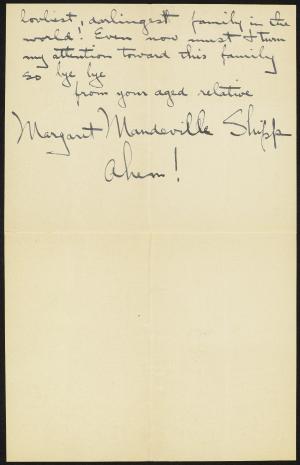 lovliest, darlingest family in the
world! Even now must I turn
my attention toward this family
so bye bye
from your aged relative
Margaret Mandeville Shipp
Ahem!